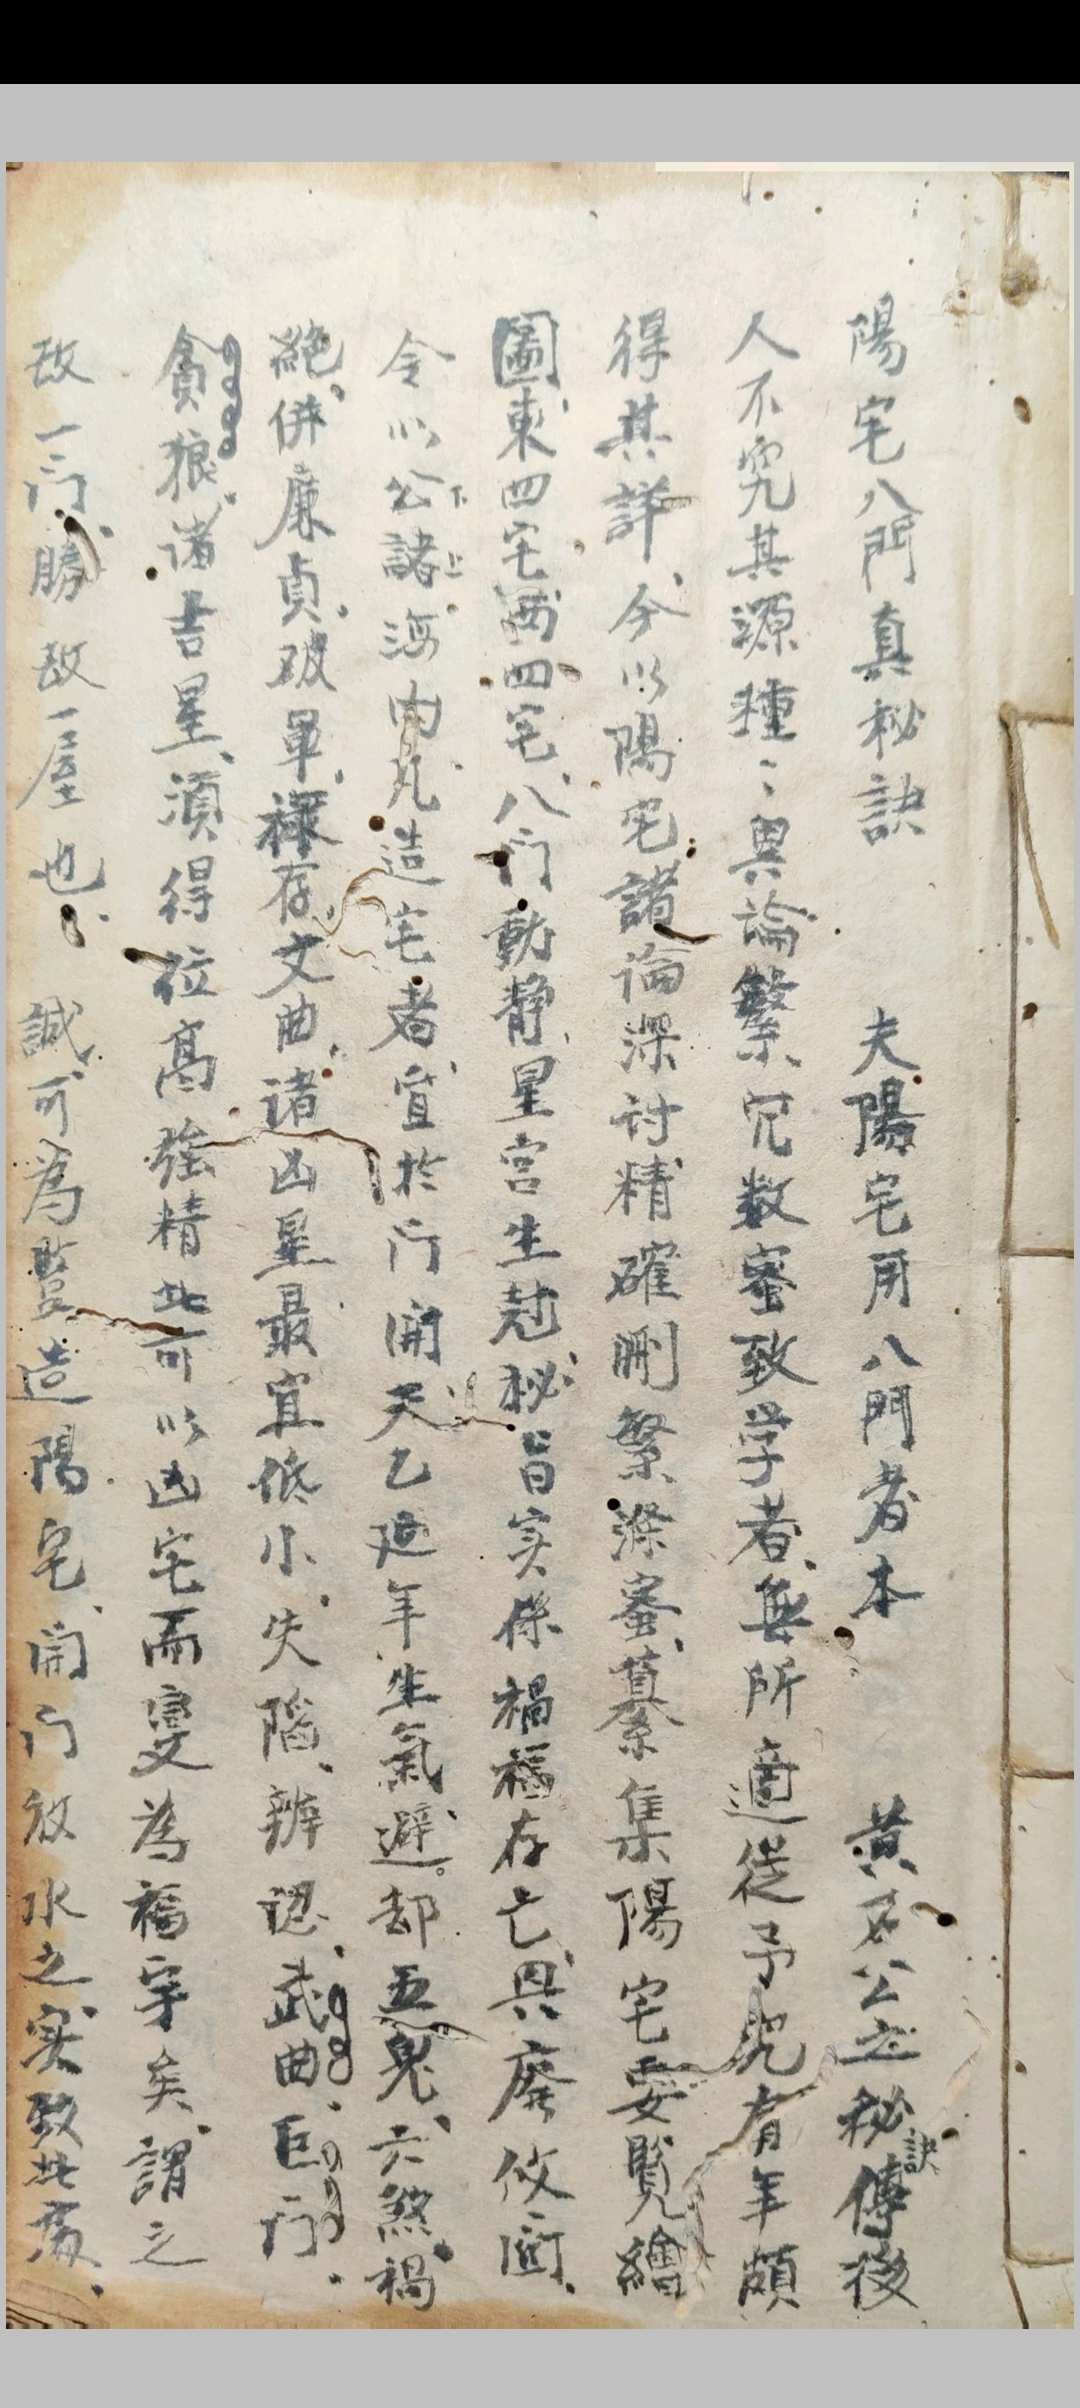 陽宅八門真秘訣　夫陽宅用八門者本　黄石公之秘訣傳後
人不究其源種〻異論繁冗数蜜致学者無所適從予究有年頗
得其詳今以陽宅諸論深討精確刪繁滌蜜纂集陽宅要覧繪
圖東四宅西四宅八门動静星宫生尅秘旨实係禍福存亡興廢攸関
令以公下諸上海内凡造宅者宜於门開天乙延年生氣避却五鬼六煞禍
絕併廉貞破軍禄存文曲诸凶星最宜低小失陷辨认武曲巨门
貪狼诸吉星須得位高強精此可以凶宅而變為福宇矣謂之
改一门勝改一屋也　誠可為豎造陽宅開门放水之实致